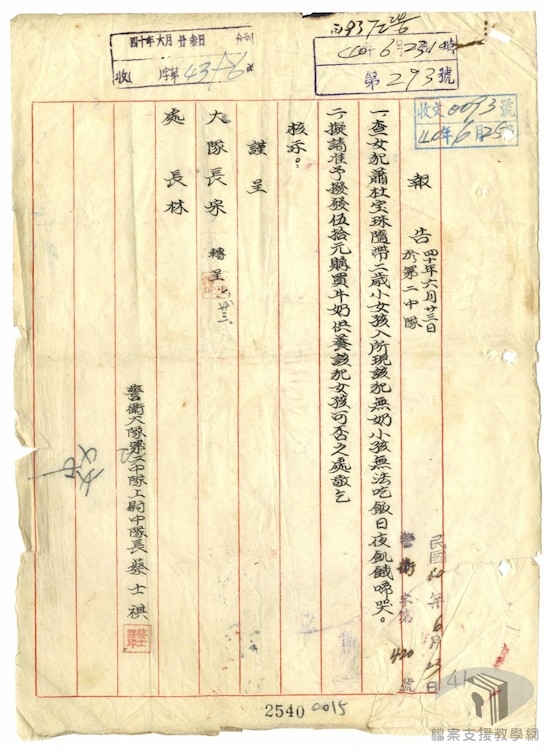 四十年六月廿三日
收 字第 4376 號
40年6月23日
第293號
收文0093號
40年6月25日
報 告 四十年六月廿三日
於第二中隊
一、查女犯蕭杜宝珠隨帶二歲小女孩入所現該犯無奶小孩無法吃飯日夜飢餓啼哭。
二、擬請准予撥發伍拾元購買牛奶供養該犯女孩可否之處敬乞
核示。
謹 呈
大隊長宋 轉呈 廿三
處 長 林
警衛大隊第二中隊上尉中隊長 蔡士祺
民國40年6月23日
警衛字第420號
2540 0015
41
檔案支援教學網